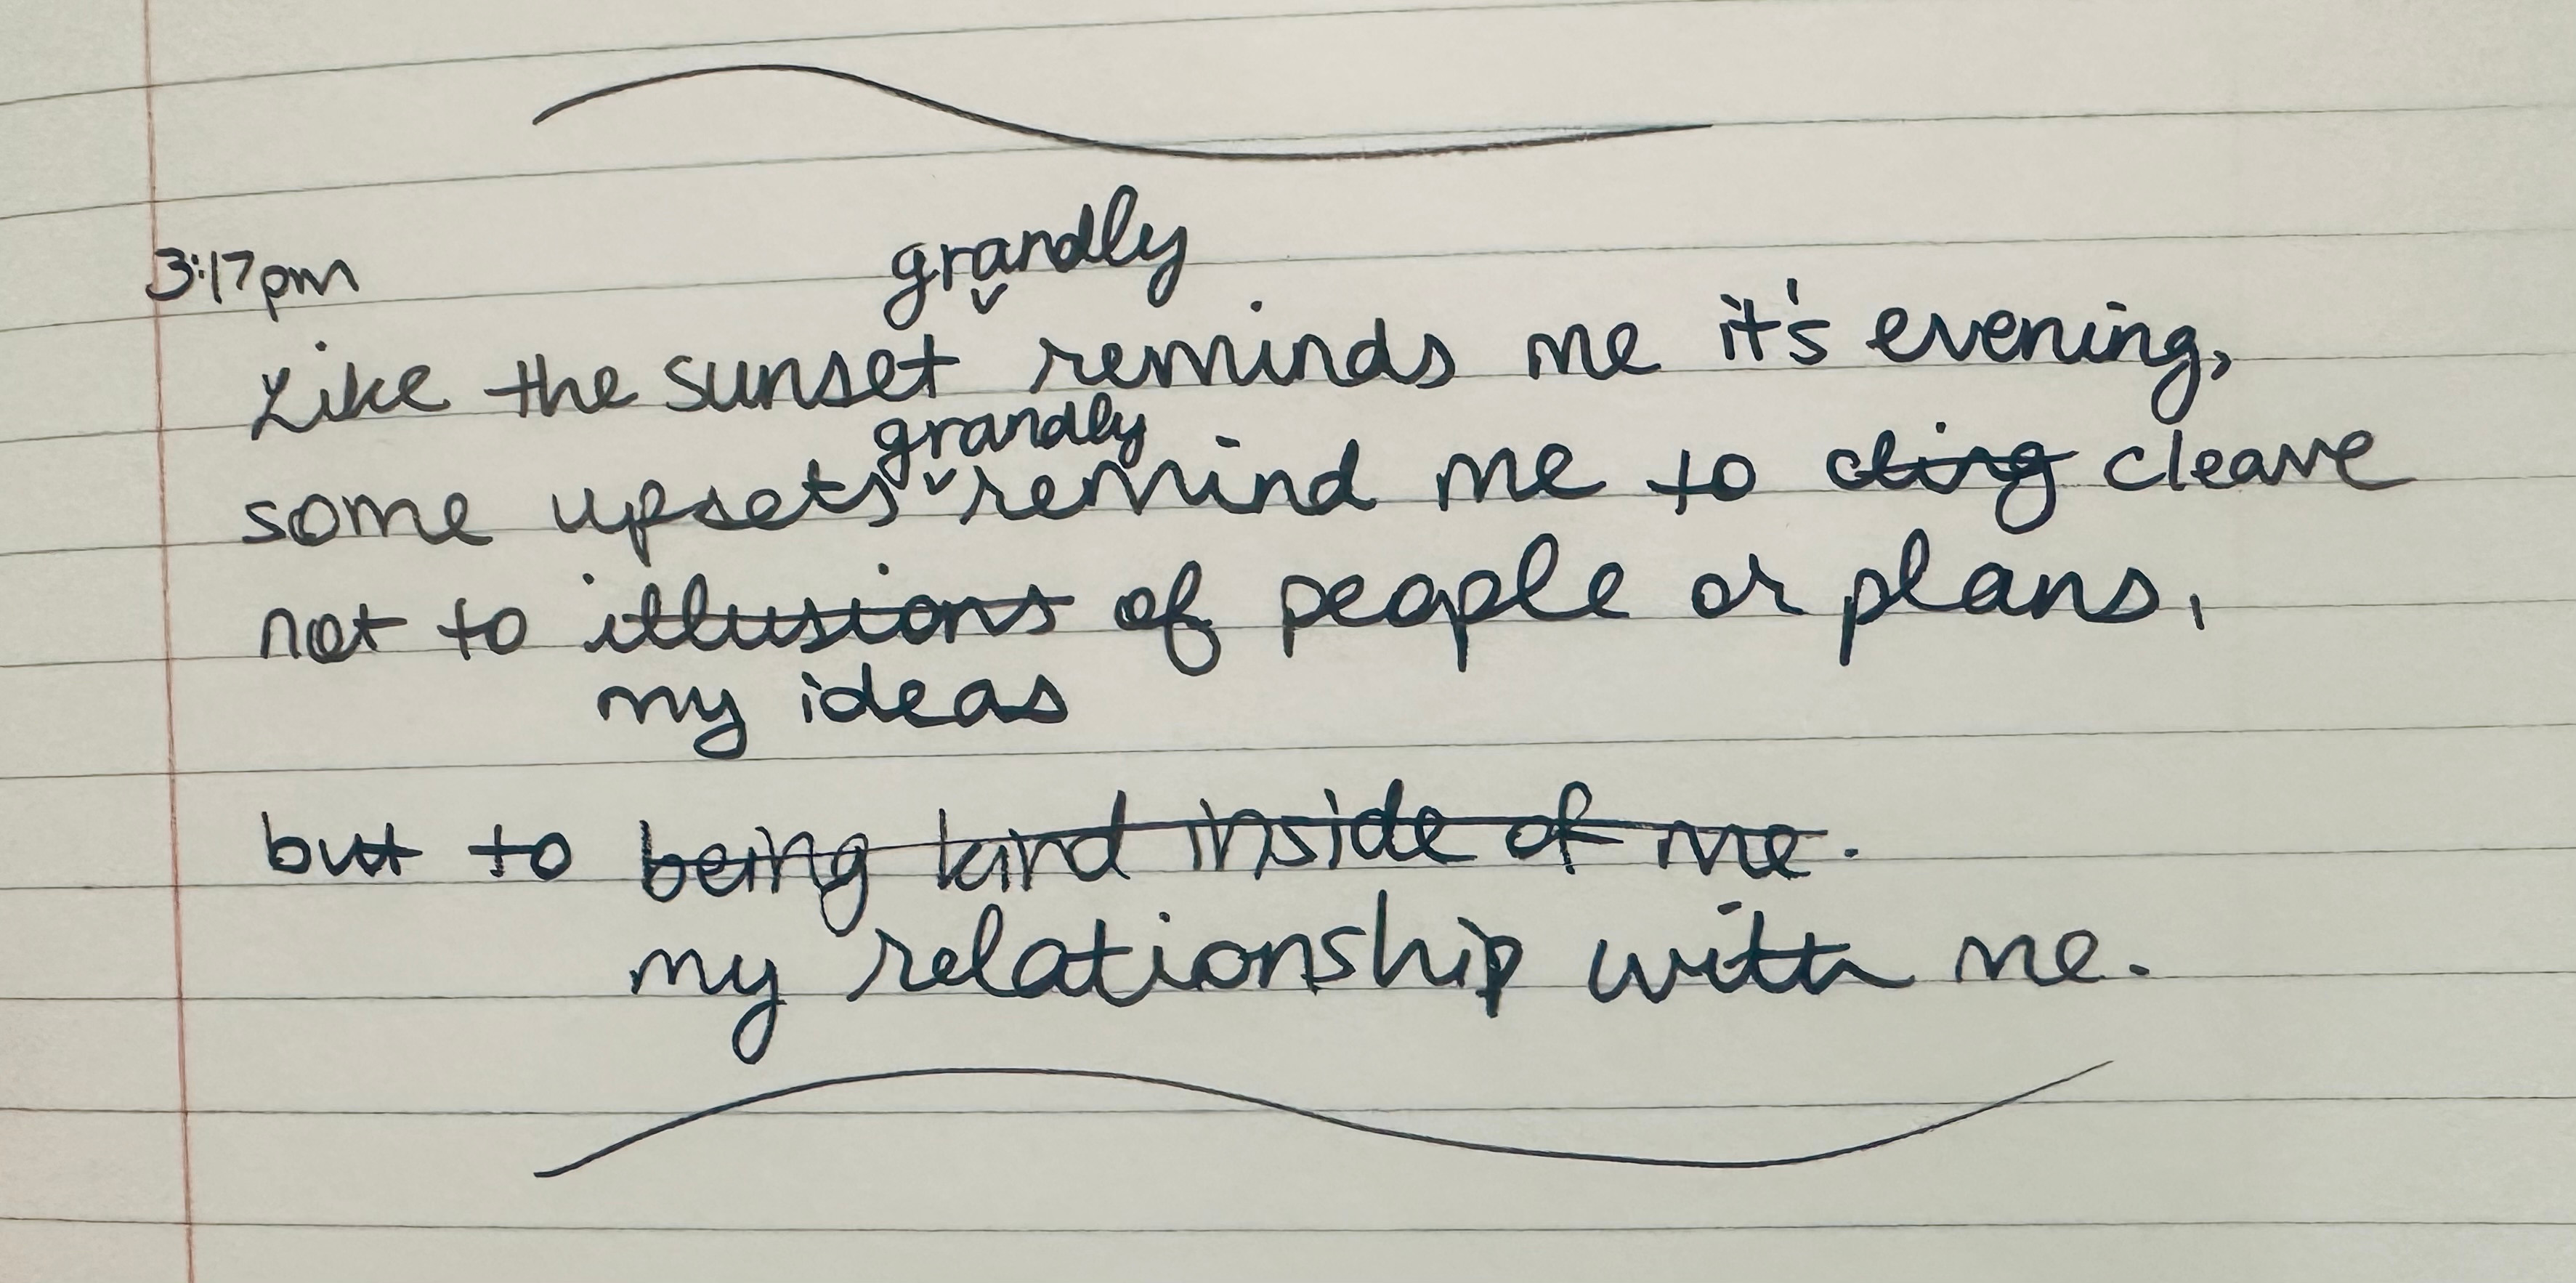 grandly
3:17pm
Like the sunset reminds me it's evening,
grandly
some upsets remind me to cling cleave
not to illusions of people or plans,
my ideas
but to being kind inside of me.
my relationship with me.